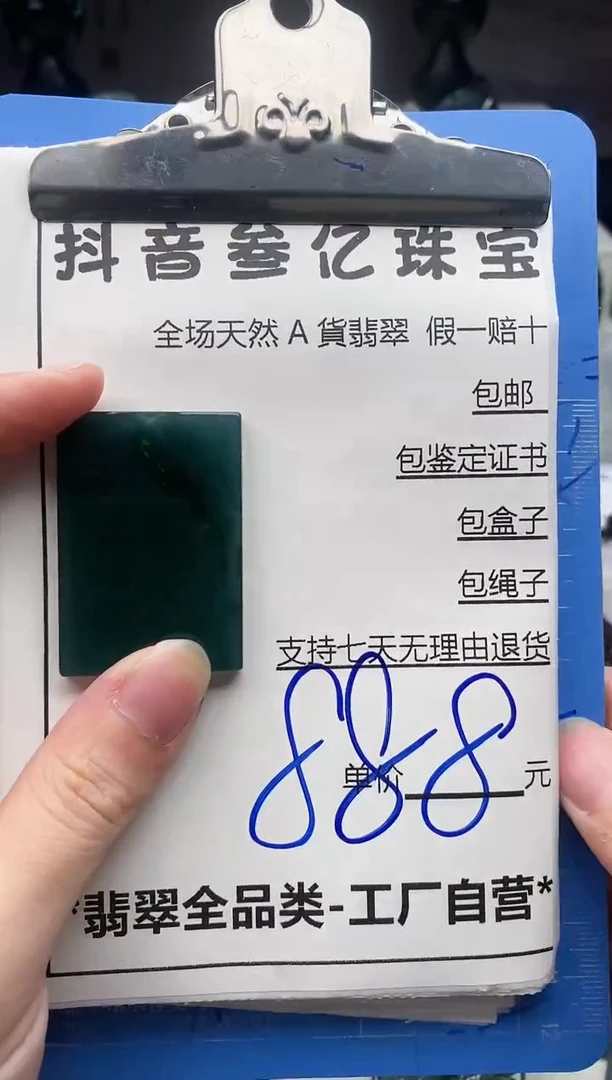 抖音叁亿珠宝
全场天然A貨翡翠 假一赔十
包邮
包鉴定证书
包盒子
包绳子
支持七天无理由退货
888
单价______元
*翡翠全品类-工厂自营*